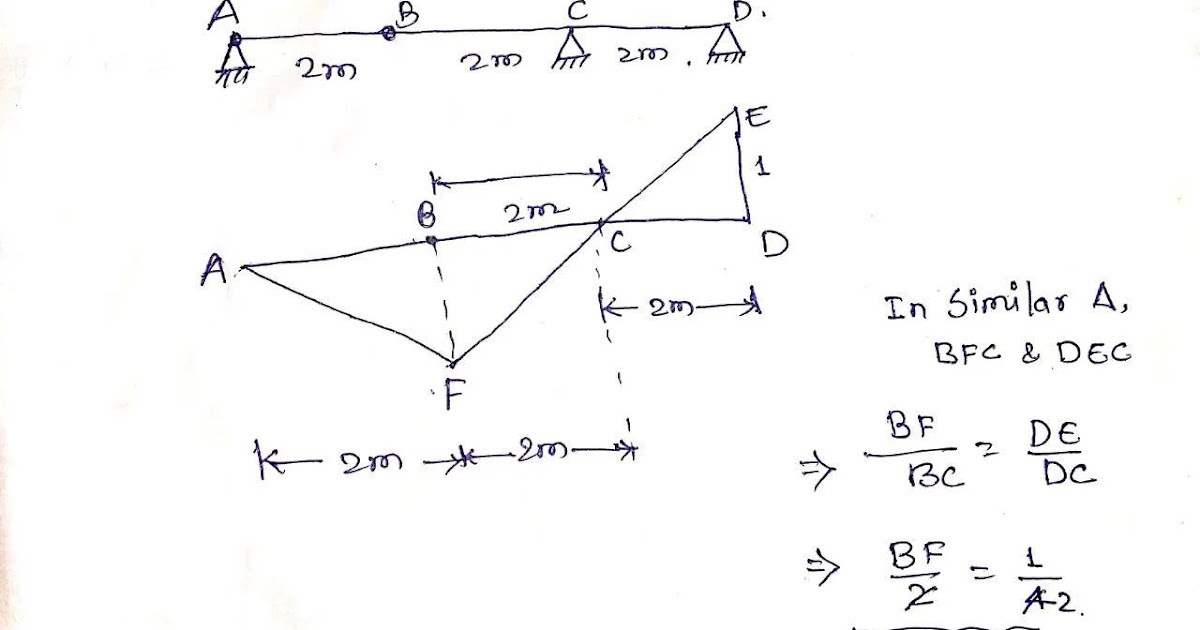 A B C D.
2m 2m 2m.
E
1
B 2m C D
A
2m
F
2m 2m
In Similar Δ,
BFC & DEC
⇒ BF/BC = DE/DC
⇒ BF/2 = 1/2.